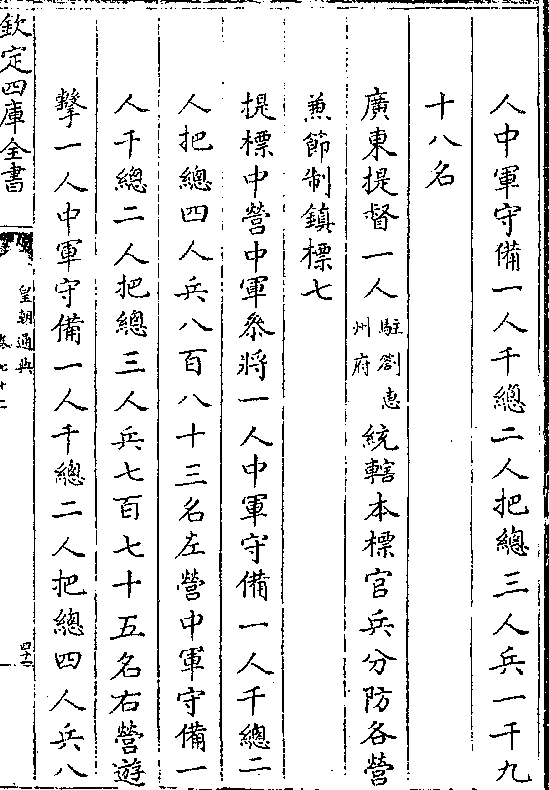 人中軍守備一人千總二人把總三人兵一千九
十八名
廣東提督一人駐劄惠州府統轄本標官兵分防各營
兼節制鎮標七
提標中營中軍叅將一人中軍守備一人千總二
人把總四人兵八百八十三名左營中軍守備一
人千總二人把總三人兵七百七十五名右營遊
擊一人中軍守備一人千總二人把總四人兵八
欽定四庫全書
皇朝通典
卷七十二